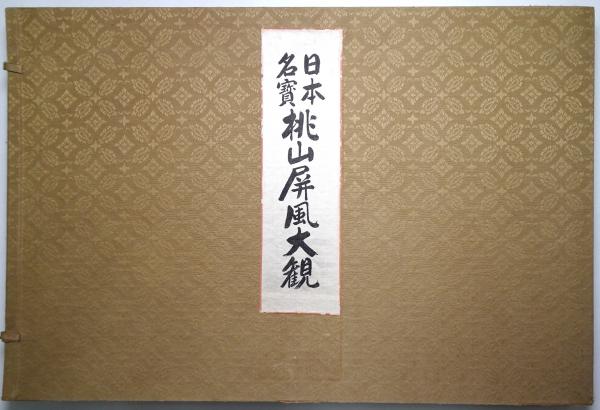 日本
名寳
桃山屏風大観